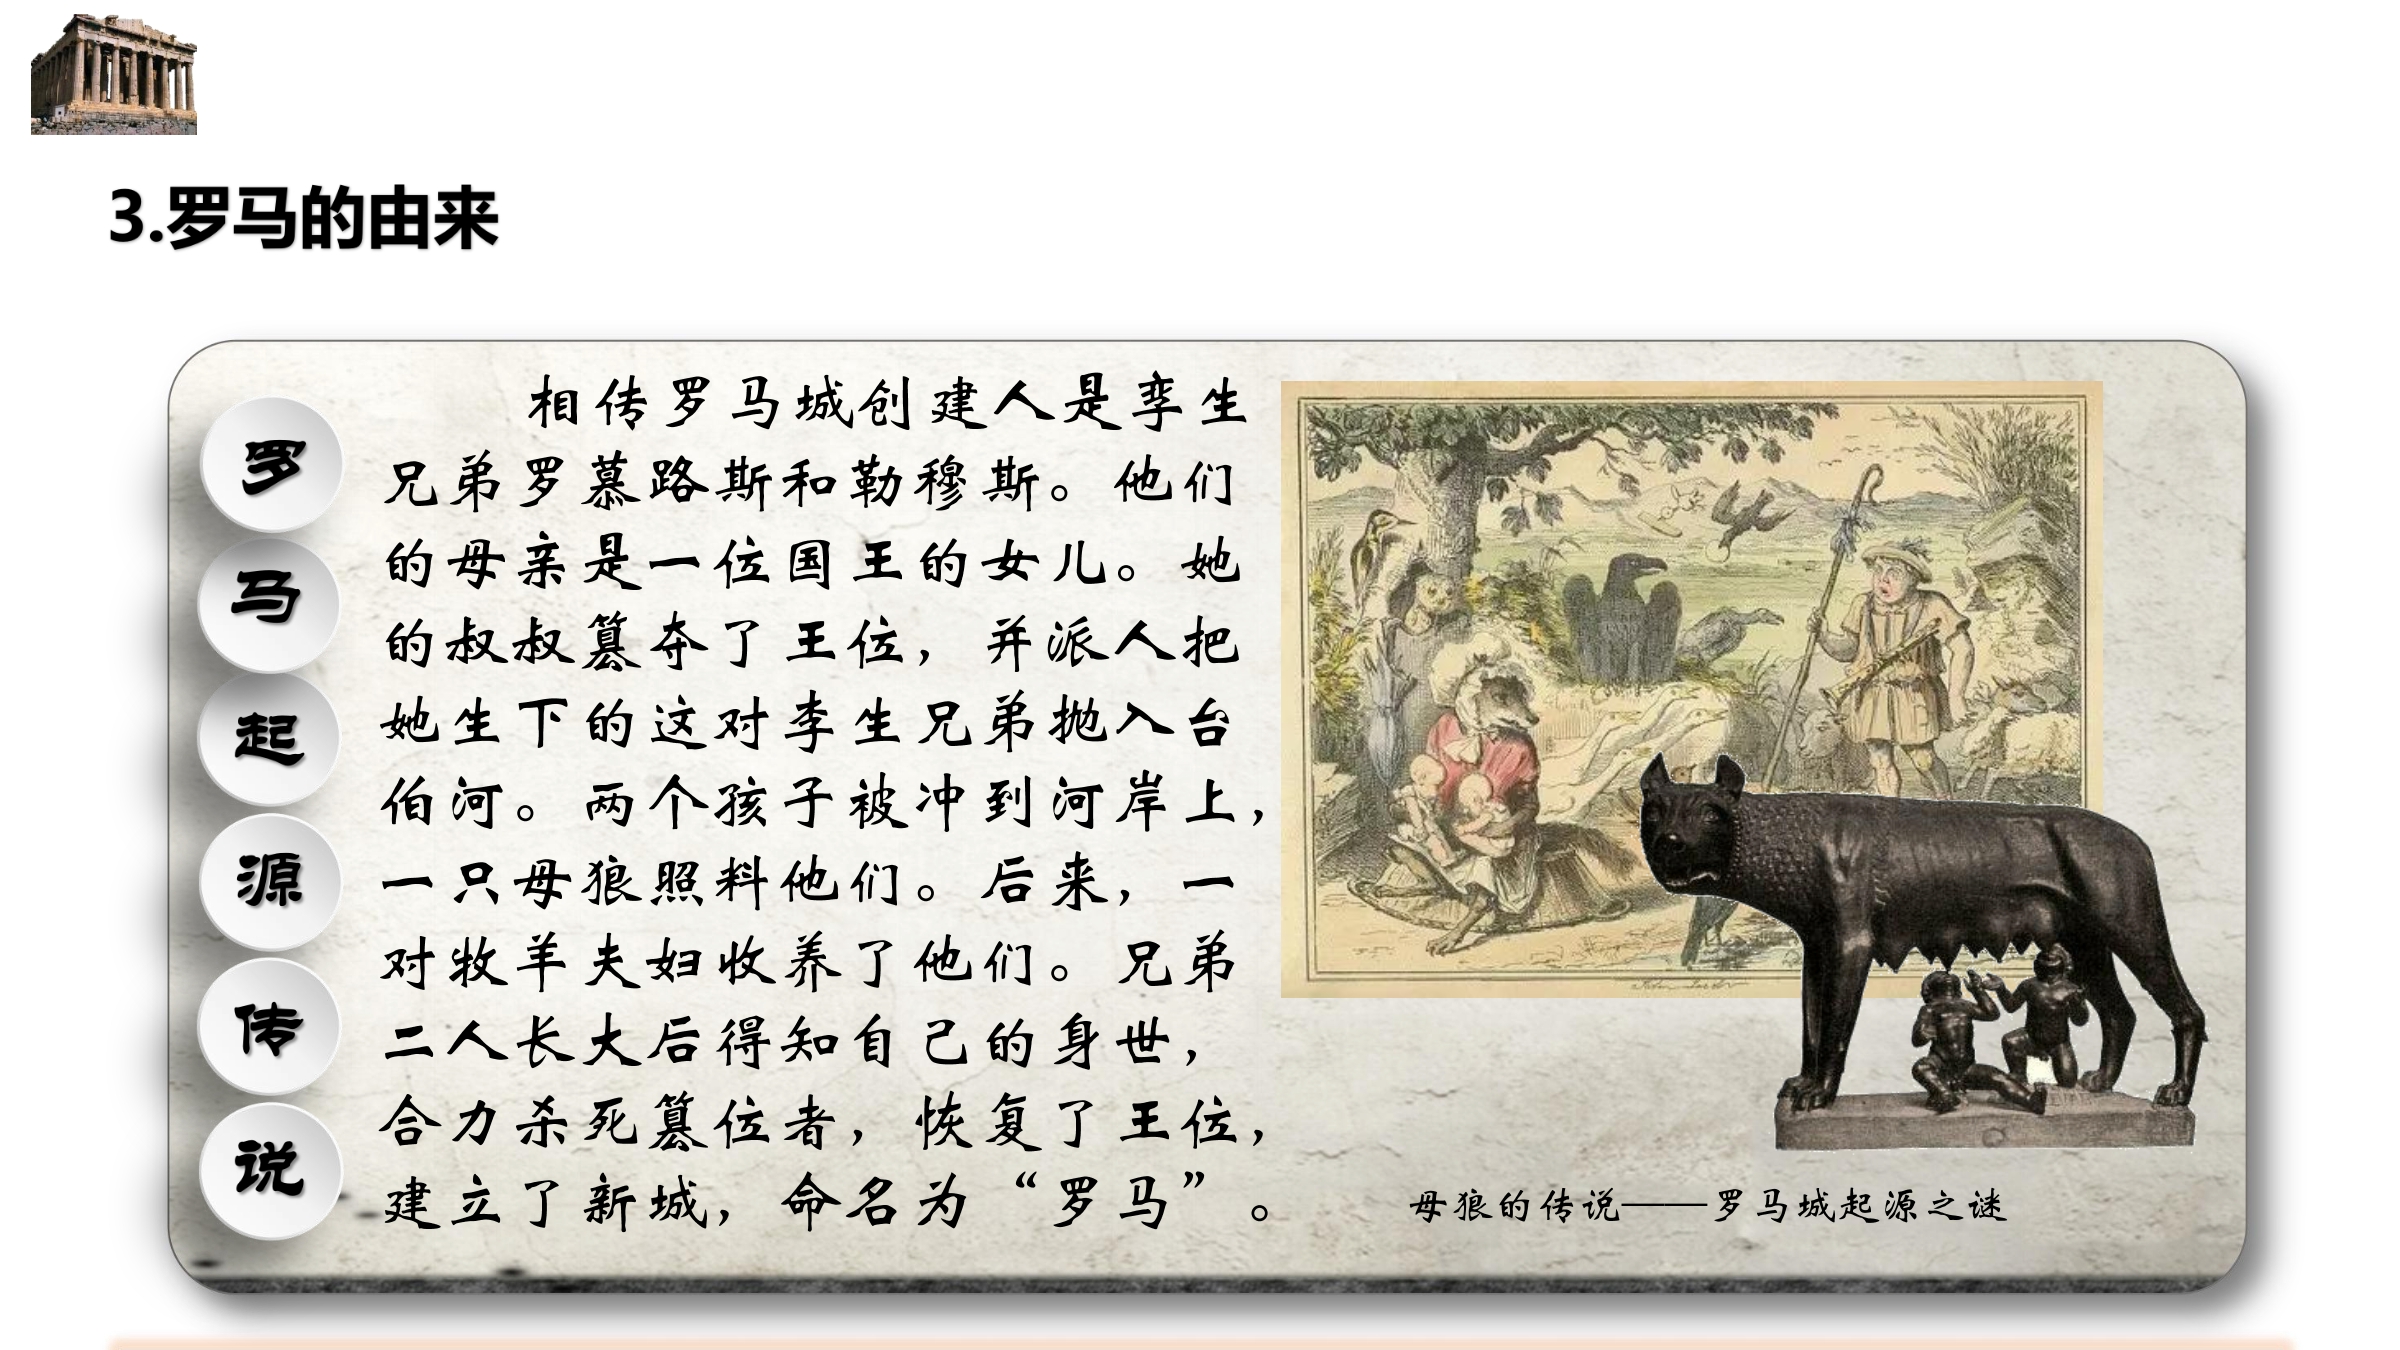 3.罗马的由来
罗
马
起
源
传
说
相传罗马城创建人是孪生
兄弟罗慕路斯和勒穆斯。他们
的母亲是一位国王的女儿。她
的叔叔篡夺了王位，并派人把
她生下的这对李生兄弟抛入台
伯河。两个孩子被冲到河岸上，
一只母狼照料他们。后来，一
对牧羊夫妇收养了他们。兄弟
二人长大后得知自己的身世，
合力杀死篡位者，恢复了王位，
建立了新城，命名为“罗马”。
母狼的传说——罗马城起源之谜